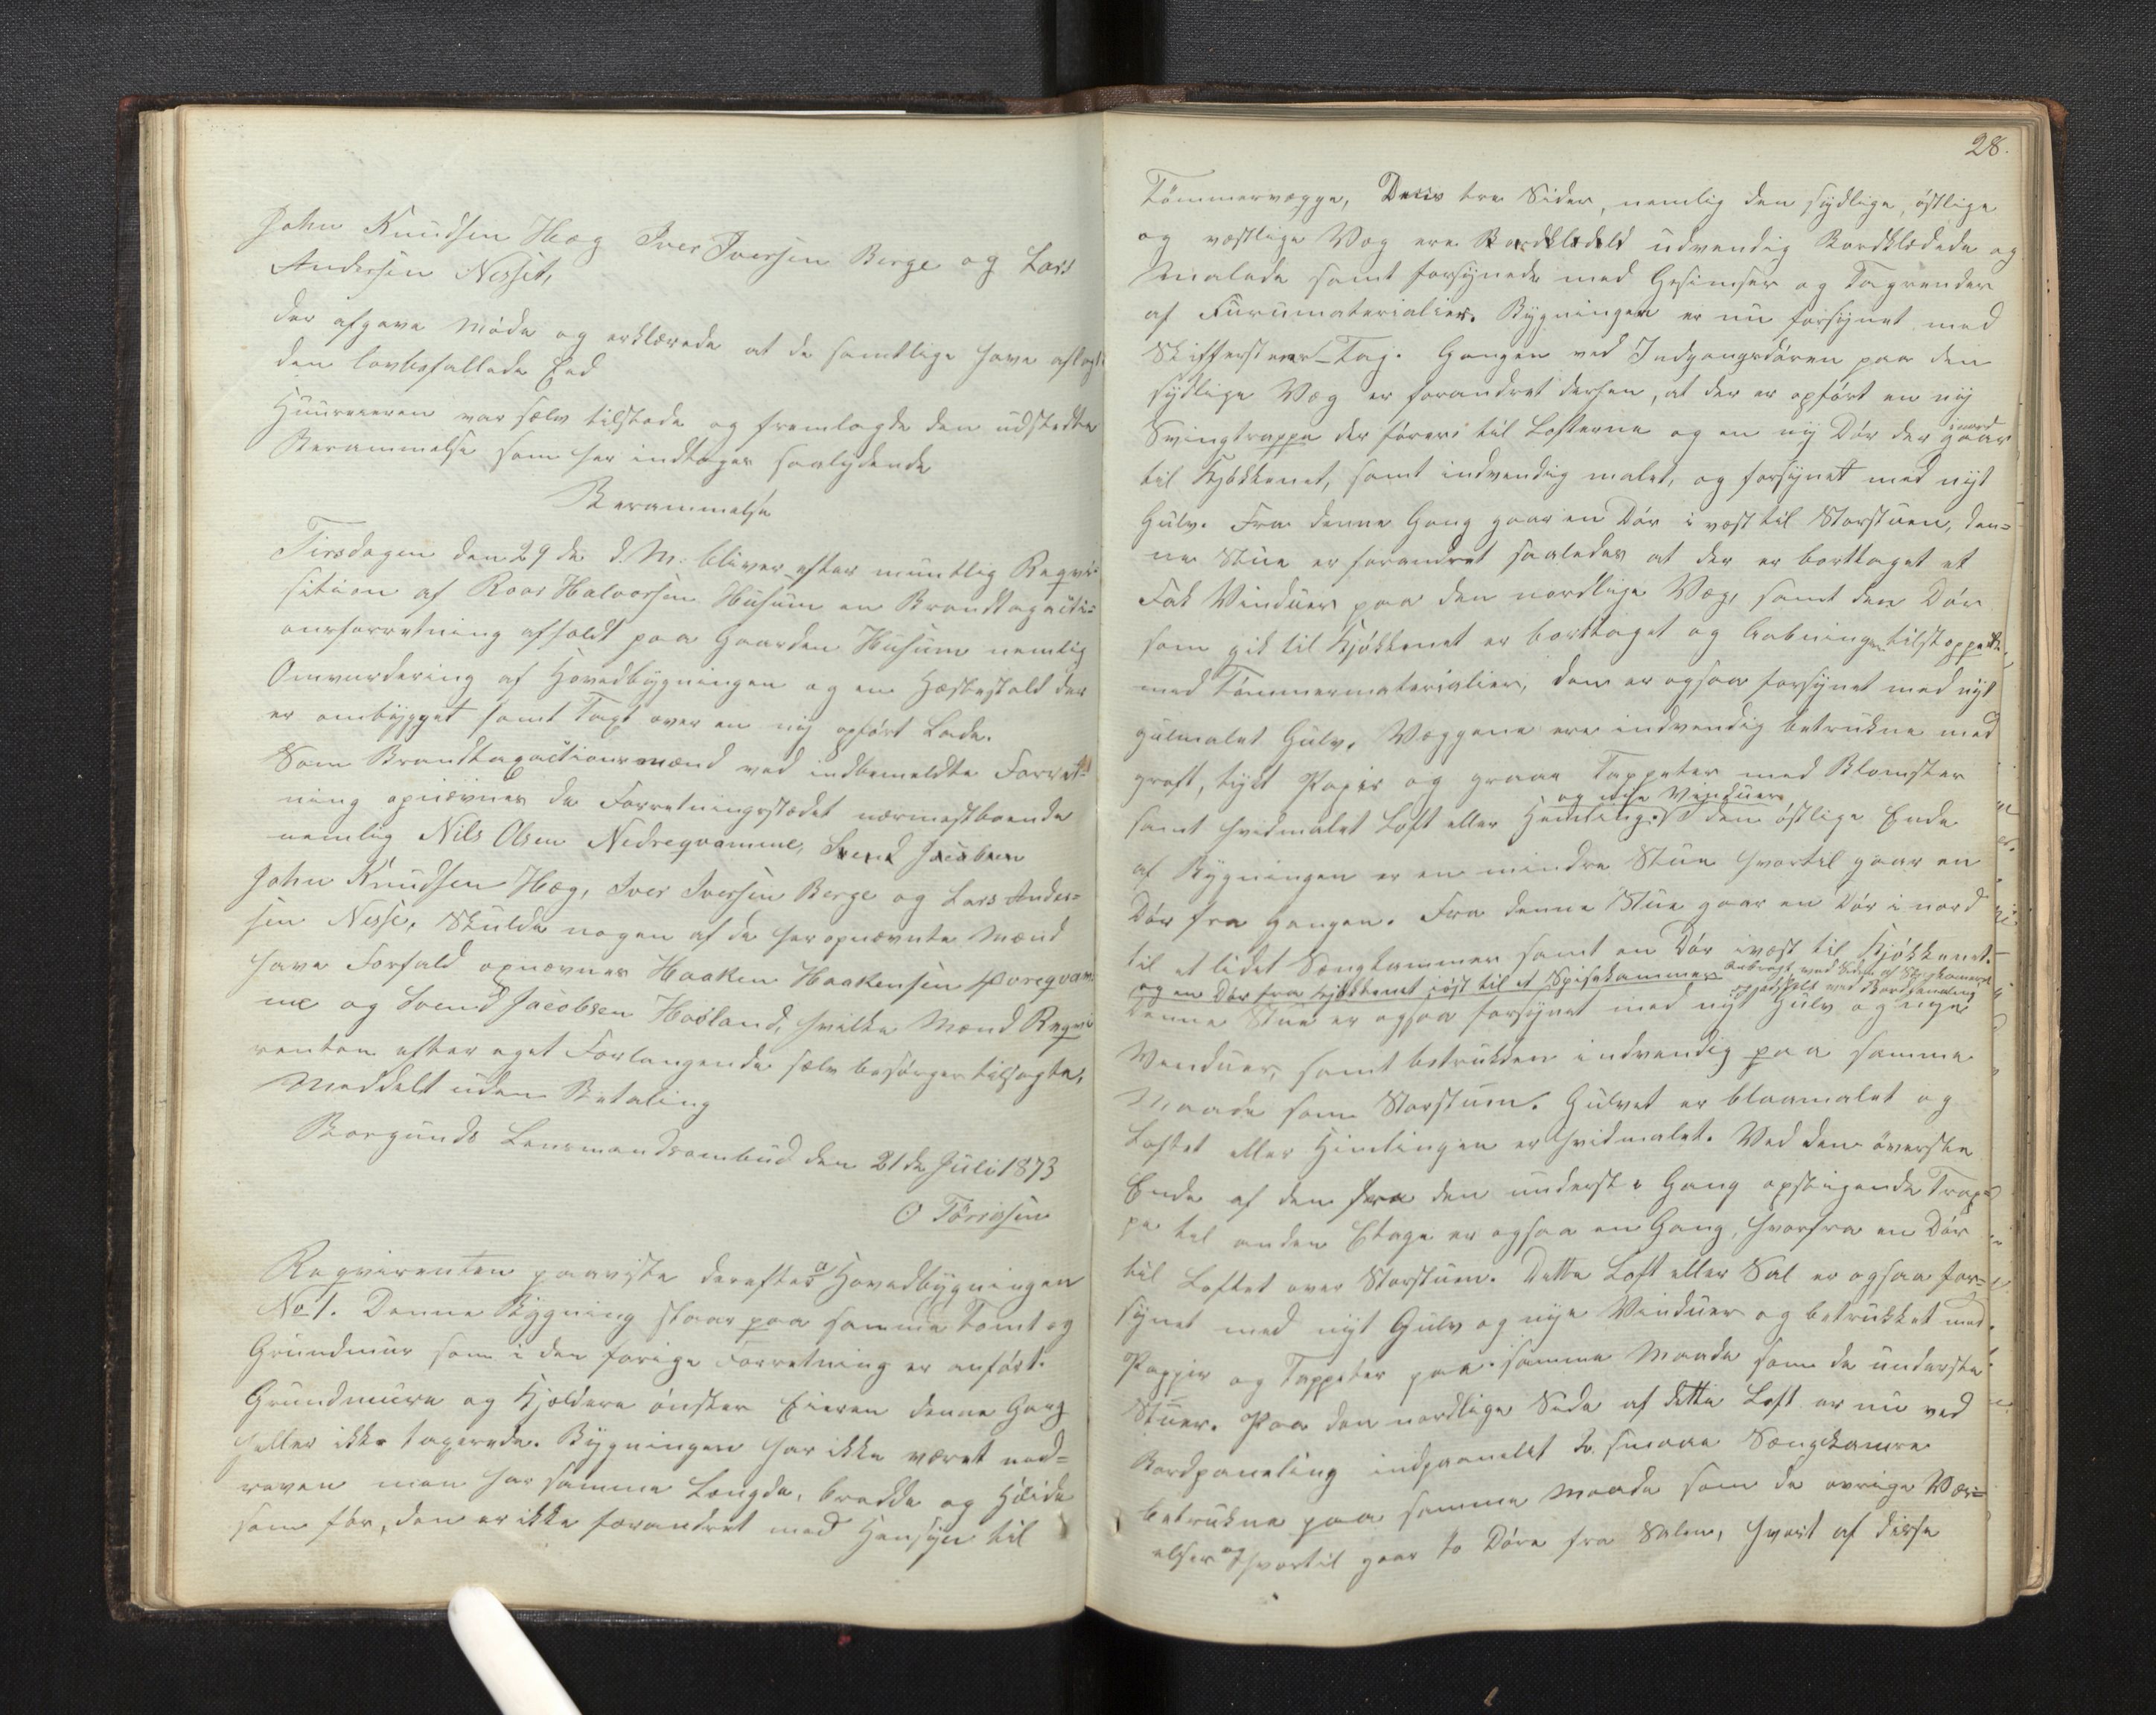 John Knudsen Hæg Iver Iversen Berge og Lars
Andersen Nesset,
der afgave Møde og erklærede at de samtlige have aflagt
den lovbefallede Eed
Huuseieren var sælv tilstede og fremlagde den udstedte
Berammelse som her indtages saalydende
Berammelse
Tirsdagen den 29de d. M. bliver efter muntlig Reqvi-
sition af Roar Halvorsen Husum en Brandtaxati-
onsforretning afholdt paa Gaarden Husum nemlig
Omvurdering af Hovedbygningen og en Hæstestald der
er ombygget samt Taxt over en ny opført Lade.
Som Brandtaxationsmænd ved indbemeldte Forret-
ning opnævnes de Forretningsstedet nærmestboende
nemlig Nils Olsen Nedreqvamme, Svend Jacobsen
John Knudsen Hæg, Iver Iversen Berge og Lars Ander-
sen Nesse. Skulde nogen af de her opnævnte Mænd
have Forfald opnævnes Haaken Haakensen Øvreqvam
me og Svend Jacobsen Haōland, hvilke Mænd Reqvi
renten efter eget Forlangende sælv besørger tilsagte,
Meddelt uden Betaling
Borgunds Lensmandsombud den 21de Juli 1873
O Tōrrissen
Reqvirenten paaviste derefter a Hovedbygningen
No 1. Denne Bygning staar paa samme Tomt og
Grundmur som i den forige Forretning er anført.
Grundmure og Kjeldere ønsker Eieren denne Gang
heller ikke taxerede. Bygningen har ikke været ned-
reven men har samme Længde, bredde og Høide
som før, den er ikke forandret med Hensyn til
28.
Tømmervægge, Dens tre Sider, nemlig den sydlige, østlige
og vestlige Væg ere Bordklædeld udvendig Bordklædede og
Malede samt forsynede med Gesimser og Tagrender
af Furumaterialier. Bygningen er nu forsynet med
Skiffersteens-Tag. Gangen ved Indgangsdøren paa den
sydlige Væg er forandret derhen, at der er opført en ny
Svingtrappe der fører til Lofterne og en ny Dør der gaar i nord
til Kjøkkenet, samt indvendig malet, og forsynet med nyt
Gulv. Fra denne Gang gaar en Dør i vest til Storstuen, den-
ne Stue er forandret saaledes at der er borttaget et
Fak Vinduer paa den nordlige Væg, samt den Dør
som gik til Kjøkkenet er borttaget og Aabningen tilstoppet
med Tømmermaterialier, den er ogsaa forsynet med nyt
gulmalet Gulv. Væggene ere indvendig betrukne med
groft, tykt Papir og graae Tappeter med Blomster
og nye Vinduer
samt hvidmalet Loft eller Hemling. I den østlige Ende
af Bygningen er en mindre Stue hvortil gaar en
Dør fra Gangen. Fra denne Stue gaar en Dør i nord
til et lidet Sengkammer samt en Dør i vest til Kjøkkenet.
og en Dør fra Kjøkkenet i øst til et Spisekammer
Denne Stue er ogsaa forsynet med nyt Gulv og nye
Venduer, samt betrukken indvendig paa samme
Maade som Storstuen. Gulvet er blaamalet og
Loftet eller Himlingen er hvidmalet. Ved den øverste
Ende af den fra den underste Gang opstigende Trap-
pe til anden Etage er ogsaa en Gang, hvorfra en Dør
til Loftet over Storstuen. Dette Loft eller Sal er ogsaa for-
synet med nyt Gulv og nye Vinduer og betrukket med
Pappir og Tappeter paa samme Maade som de underste
Stuer. Paa den nordlige Side af dette Loft er nu ved
Bordpaneling indpanelet to smaae Sengekamre
betrukne paa samme Maade som de øvrige Vær-
elser og hvortil gaar to Døre fra Salen, hvert af disse